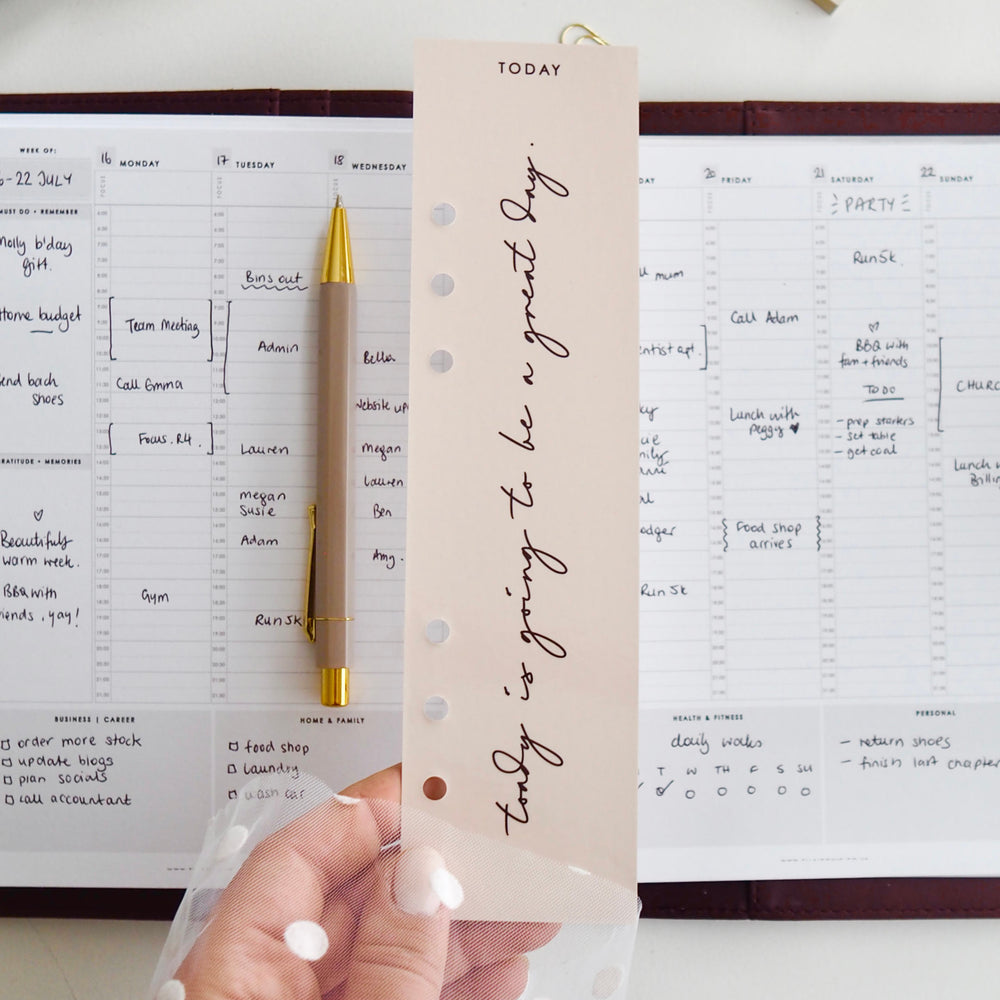 TODAY
today is going to be a great day.
WEEK OF:
JULY
MUST DO • REMEMBER
Molly b'day
gift.
Home budget
Send back
shoes
GRATITUDE • MEMORIES
Beautifully
warm week.
BBQ with
friends, yay!
16 MONDAY
FOCUS
Team Meeting
Call Emma
Focus. R4.
Gym
17 TUESDAY
FOCUS
Bins out
Admin
Lauren
megan
Susie
Adam
Run 5k
18 WEDNESDAY
FOCUS
Bella
Website
Megan
Lauren
Ben
Amy.
mum
apt.
Run 5k
20 FRIDAY
FOCUS
Call Adam
Lunch with
Peggy
Food shop
arrives
21 SATURDAY
FOCUS
PARTY
Run 5k.
BBQ with
fam + friends
TO DO
- prep starters
- set table
- get coal
22 SUNDAY
FOCUS
CHURCH
Lunch
BUSINESS | CAREER
order more stock
update blogs
plan socials
call accountant
HOME & FAMILY
food shop
laundry
wash car
HEALTH & FITNESS
daily walks
T W TH F S SU
PERSONAL
- return shoes
- finish last chapter